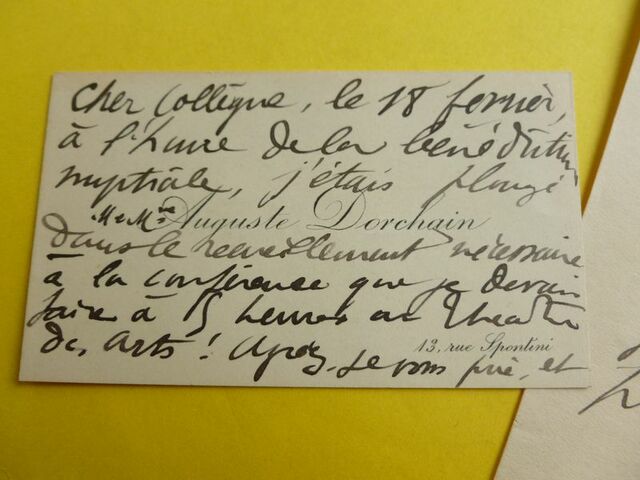 Cher Collègue, le 18 février,
à l'heure de la bénédiction
nuptiale, j'étais plongé
M & Mme Auguste Dorchain
dans le recueillement nécessaire
à la conférence que je devais
faire à 5 heures au Théâtre
des Arts! Agréez, je vous prie, et
13, rue Spontini